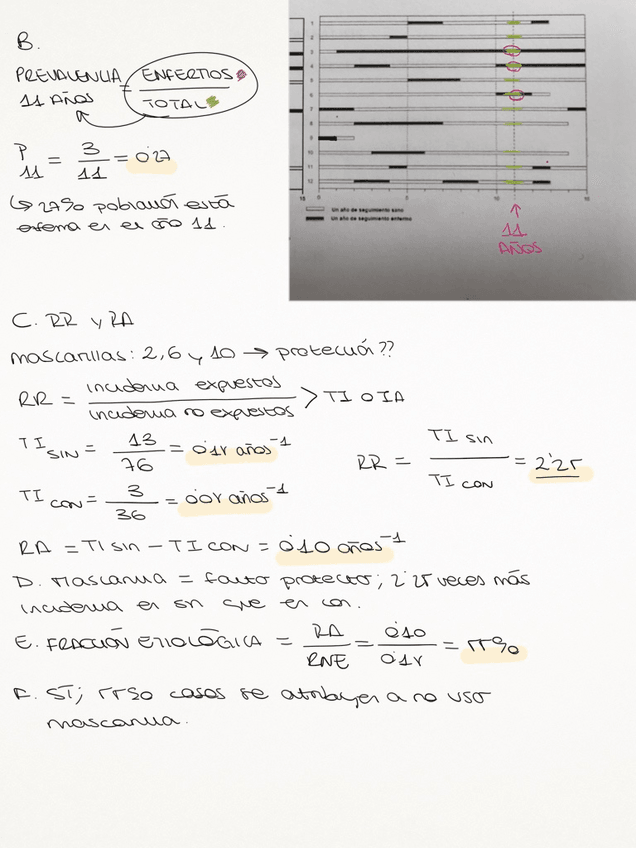 B.
PREVALENCIA 11 AÑOS = ENFERMOS / TOTAL
P 11 = 3/11 = 0'27
↳ 27% población está
enferma en el año 11.
1
2
3
4
5
6
7
8
9
10
11
12
15 0 5 10 15
Un año de seguimiento sano
Un año de seguimiento enfermo
11
AÑOS
C. RR y RA
mascarillas: 2, 6 y 10 → protección??
RR = incidencia expuestos / incidencia no expuestos > TI O IA
TI SIN = 13/76 = 0'18 años⁻¹
RR = TI sin / TI con = 2'25
TI CON = 3/36 = 0'08 años⁻¹
RA = TI sin − TI con = 0'10 años⁻¹
D. Mascarilla = factor protector; 2'25 veces más
incidencia en sin que en con.
E. FRACCIÓN ETIOLÓGICA = RA/RNE = 0'10/0'18 = 55%
F. SÍ; 55% casos se atribuyen a no uso
mascarilla.